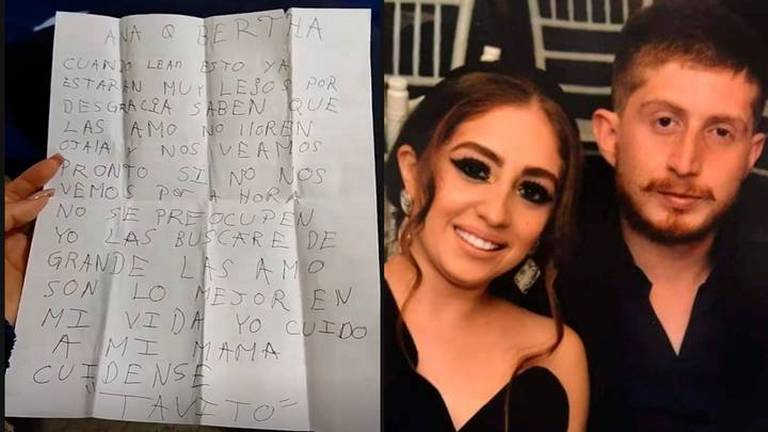 ANA Q BERTHA
CUANDO LEAN ESTO YA
ESTARAN MUY LEJOS POR
DESGRACIA SABEN QUE
LAS AMO NO LLOREN
OJALA Y NOS VEAMOS
PRONTO SI NO NOS
VEMOS POR A HORA
NO SE PREOCUPEN
YO LAS BUSCARE DE
GRANDE LAS AMO
SON LO MEJOR EN
MI VIDA YO CUIDO
A MI MAMA
CUIDENSE
"TAVITO"